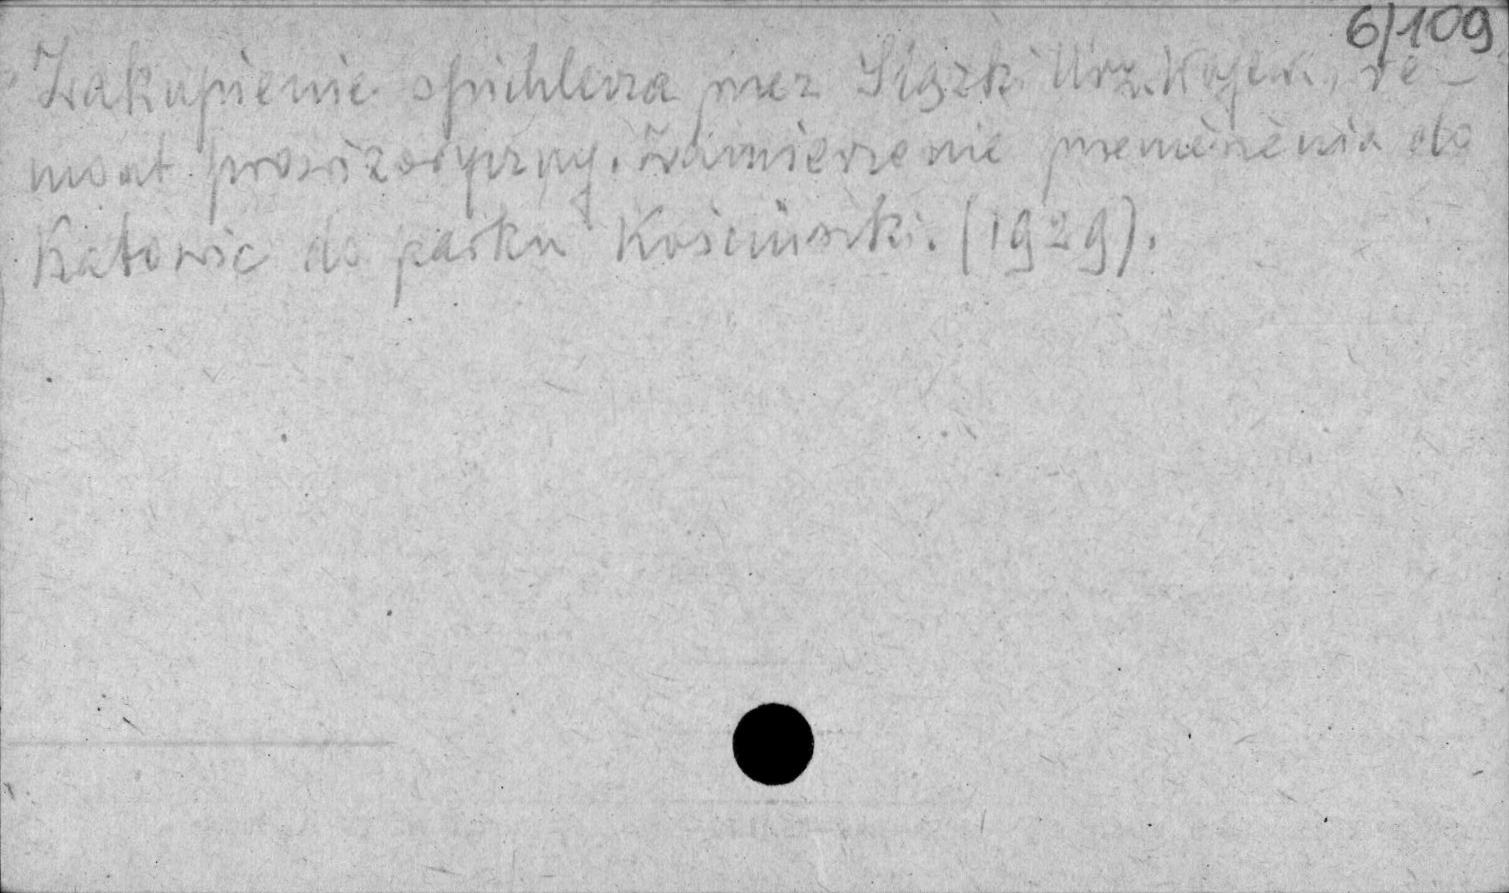 6/109
Zakupienie spichlerza przez Śląski Urz. Wojew., re-
mont prowizoryczny. Zamierzenie przeniesienia do
Katowic do parku Kościuszki. (1929).